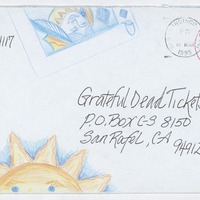 1117
Grateful Dead Tickets
P.O. Box CS 8150
San Rafel, CA
94912
1993